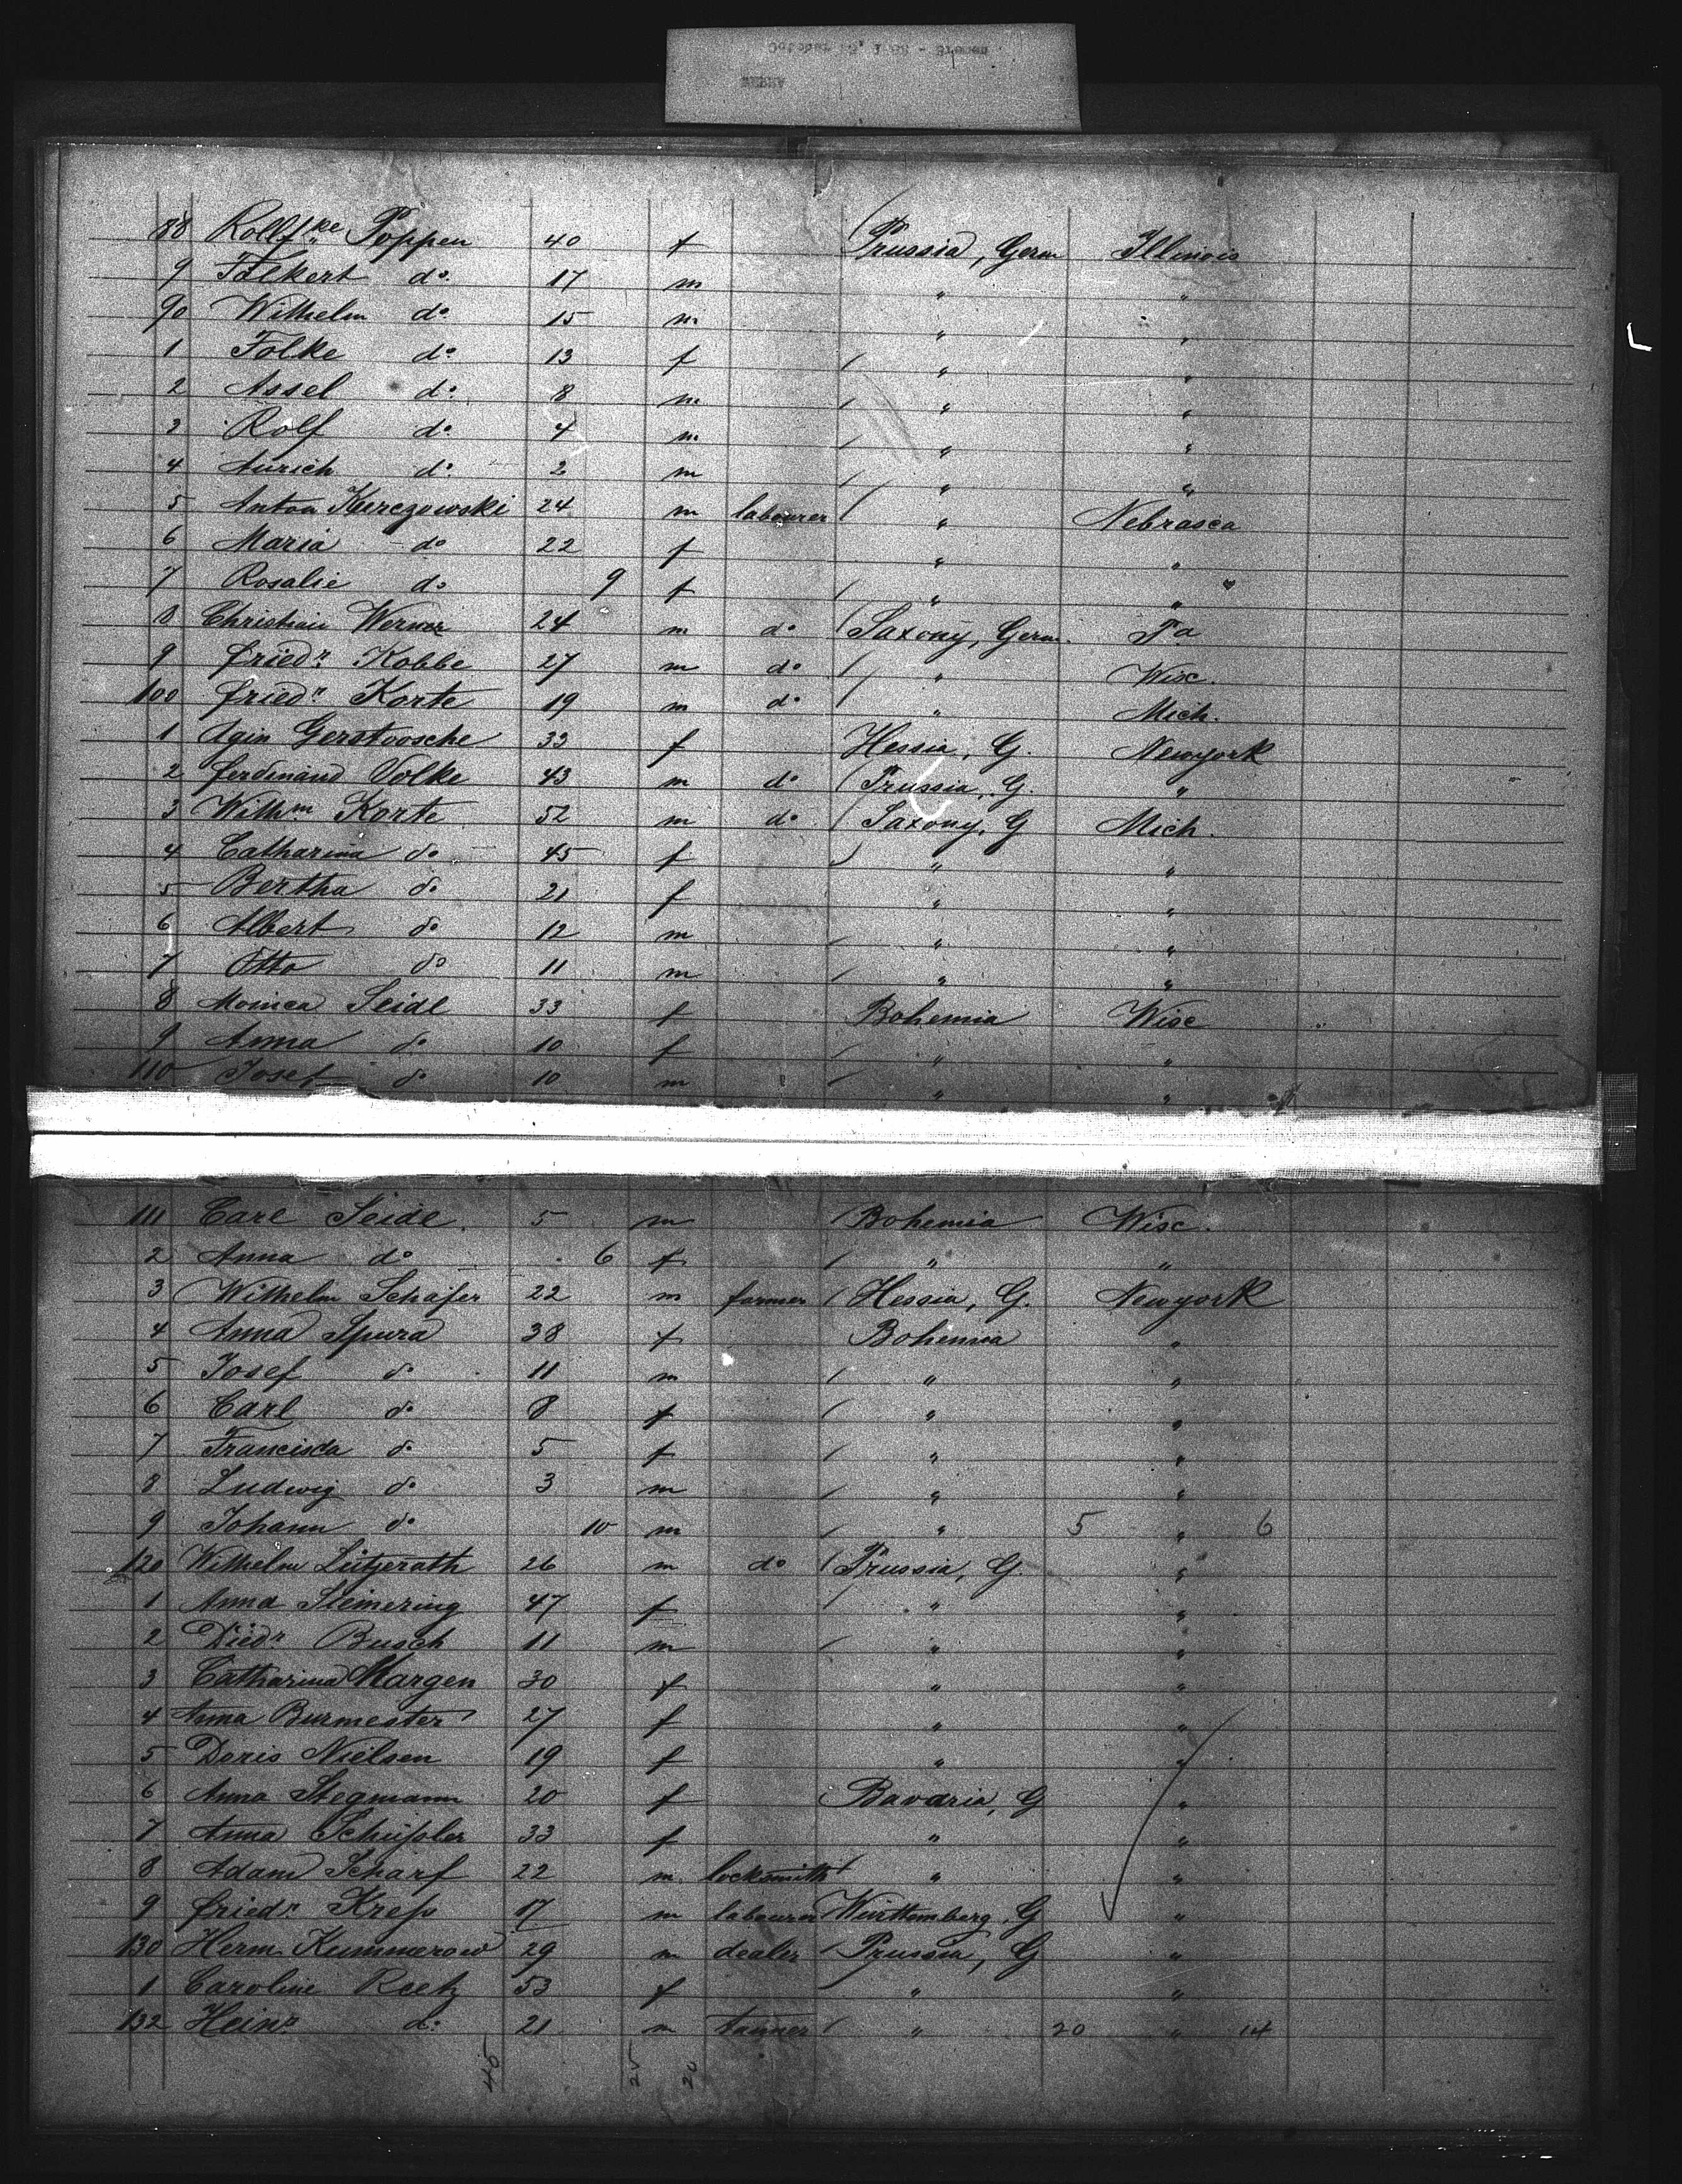 88 Rolfke Poppen 40 f Prussia, Germ Illinois
9 Folkert do 17 m " "
90 Wilhelm do 15 m " "
1 Folke do 13 f " "
2 Assel do 8 m " "
3 Rolf do 4 m " "
4 Aurich do 2 m " "
5 Anton Kurczowski 24 m labourer " Nebrasca
6 Maria do 22 f " "
7 Rosalie do 9 f " "
8 Christian Werner 24 m do Saxony, Germ. Pa
9 Friedr. Kobbe 27 m do " Wisc.
100 Friedr Korte 19 m do " Mich.
1 33 f Hessia, G. Newyork
2 Ferdinand Volke 43 m do Prussia, G. "
3 Wilhm Korte 52 m do Saxony, G Mich.
4 Catharina do 45 f " "
5 Bertha do 21 f " "
6 Albert do 12 m " "
7 Otto do 11 m " "
8 Monica Seidl 33 f Bohemia Wisc
9 Anna do 10 f " "
110 Josef do 10 m " "
111 Carl Seidl 5 m Bohemia Wisc.
2 Anna do 6 f " "
3 Wilhelm Schäfer 22 m farmer Hessia, G. Newyork
4 Anna Spura 38 f Bohemia "
5 Josef do 11 m " "
6 Carl do 8 f " "
7 Francisca do 5 f " "
8 Ludwig do 3 m " "
9 Johann do 10 m " 5 " 6
120 Wilhelm Lützerath 26 m do Prussia, G. "
1 Anna 47 f " "
2 Diedr Busch 11 m " "
3 Catharina Margen 30 f " "
4 Anna Burmester 27 f " "
5 Doris Nielsen 19 f " "
6 Anna Stegmann 20 f Bavaria, G "
7 Anna Schüssler 33 f " "
8 Adam Scharf 22 m locksmith " "
9 Friedr Kress 17 m labourer Württemberg, G "
130 Herm. Kummerow 29 m dealer Prussia, G "
1 Caroline Reetz 53 f " "
132 Heinr do 21 m tanner " 20 " 14
45 25 20